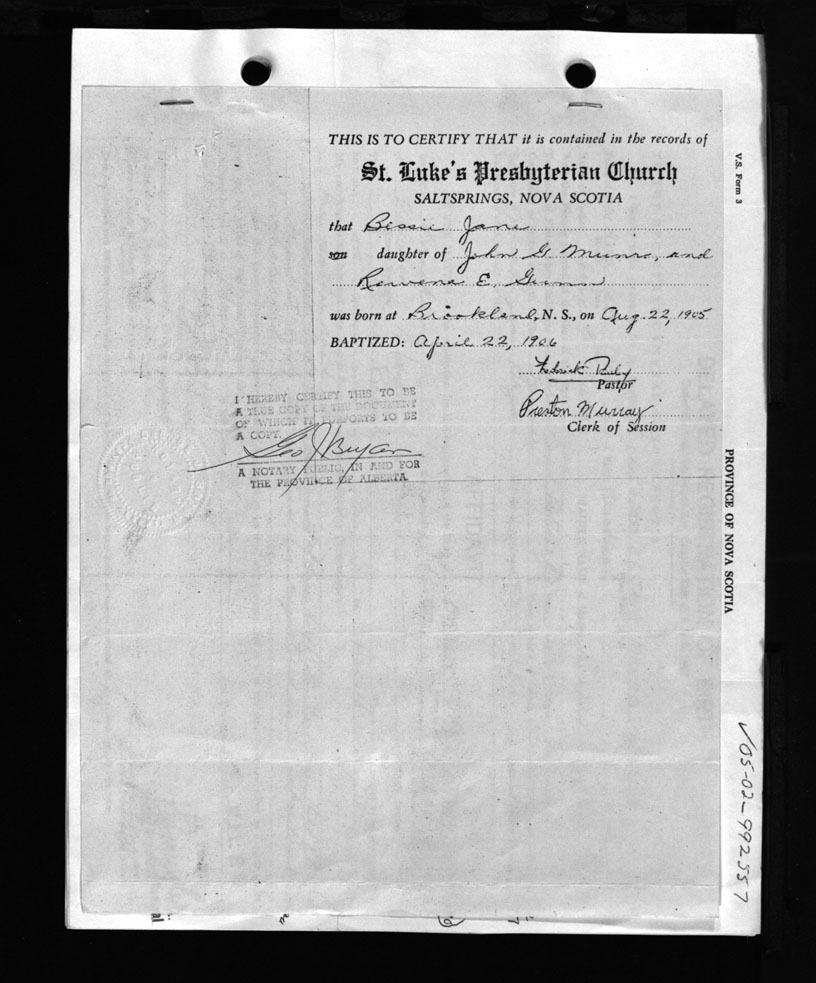 THIS IS TO CERTIFY THAT it is contained in the records of
St. Luke's Presbyterian Church
SALTSPRINGS, NOVA SCOTIA
that Bessie Jane
son daughter of John G. Munro, and
Rowena E. Gunn
was born at Brookland, N. S., on Aug. 22, 1905
BAPTIZED: April 22, 1906
Pastor
Preston Murray
Clerk of Session
I HEREBY CERTIFY THIS TO BE
A TRUE COPY OF THE DOCUMENT
OF WHICH IT PURPORTS TO BE
A COPY.
A NOTARY PUBLIC, IN AND FOR
THE PROVINCE OF ALBERTA
V.S. Form 3
PROVINCE OF NOVA SCOTIA
√05-02-992557